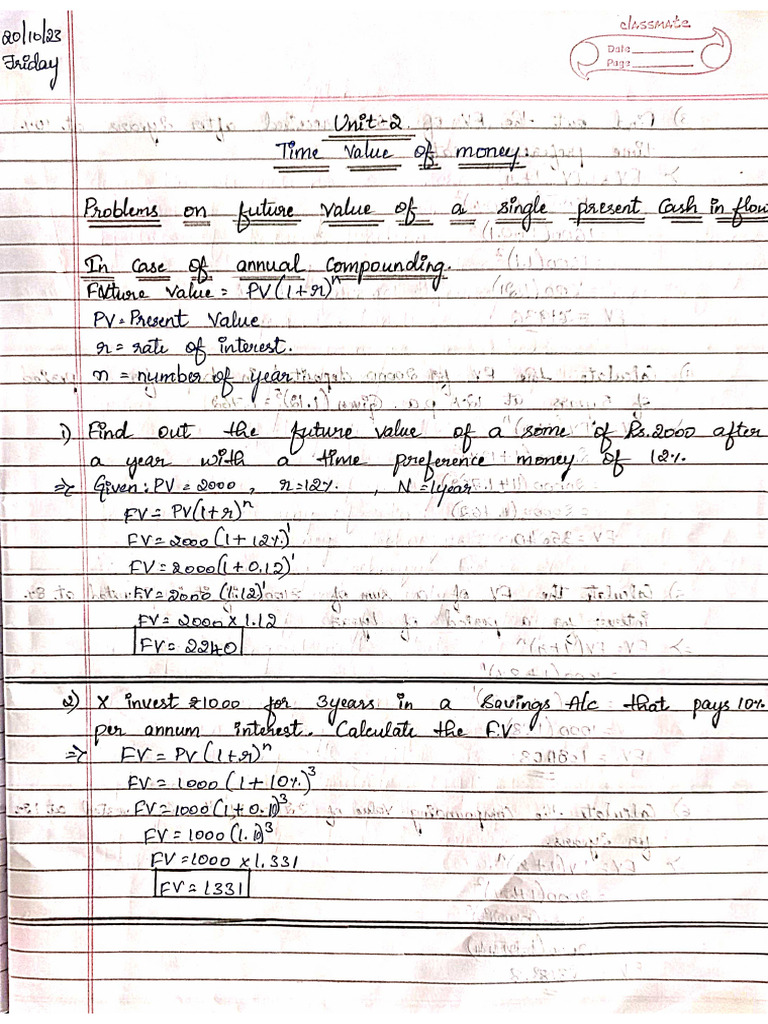 20/10/23
Friday
classmate
Date
Page
Unit-2
Time Value of money.
Problems on future value of a single present Cash in flow
In Case of annual Compounding.
Future Value = PV(1+r)^n
PV = Present Value
r = rate of interest.
n = number of year
1) Find out the future value of a some of Rs.2000 after
a year with a time preference money of 12%.
=> Given: PV = 2000, r = 12%, N = 1year
FV = PV(1+r)^n
FV = 2000(1+12%)^1
FV = 2000(1+0.12)^1
FV = 2000 (1.12)^1
FV = 2000 x 1.12
FV = 2240
2) X invest ₹1000 for 3years in a Savings A/c that pays 10%
per annum interest. Calculate the F.V
=> FV = PV(1+r)^n
FV = 1000 (1+10%)^3
FV = 1000(1+0.10)^3
FV = 1000(1.10)^3
FV = 1000 x 1.331
FV = 1331